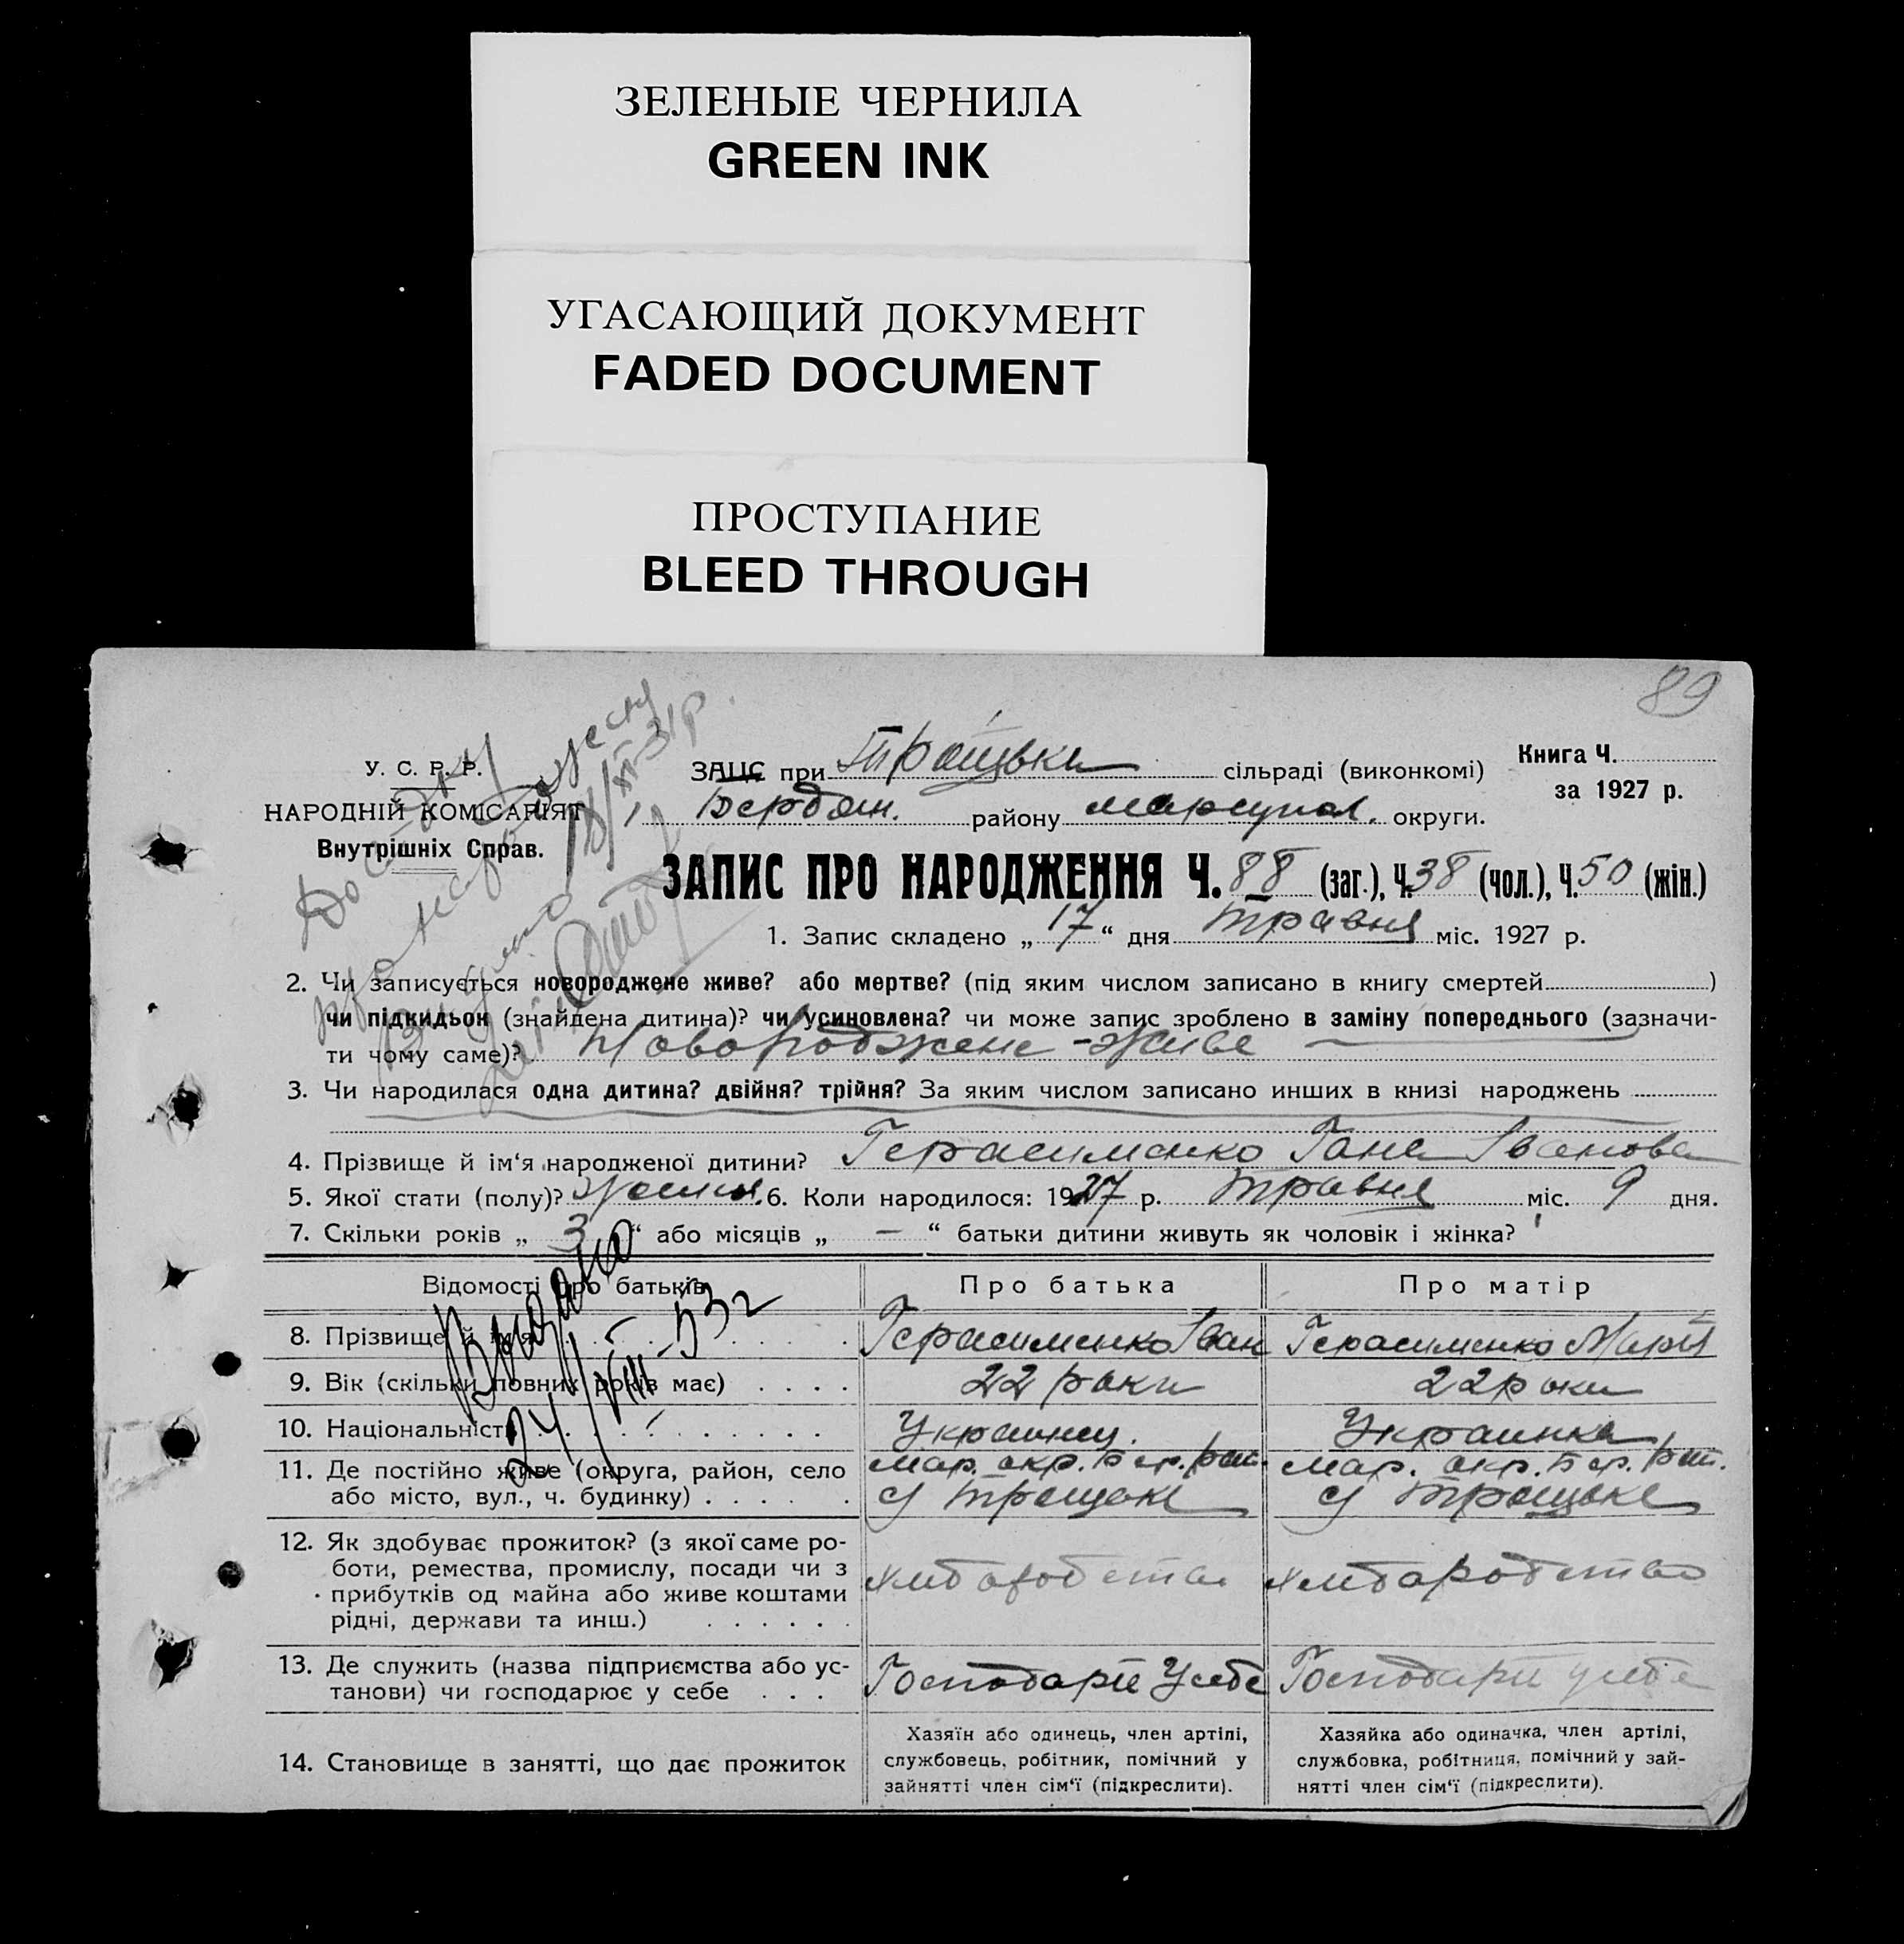 ЗЕЛЕНЫЕ ЧЕРНИЛА
GREEN INK
УГАСАЮЩИЙ ДОКУМЕНТ
FADED DOCUMENT
ПРОСТУПАНИЕ
BLEED THROUGH
89
У. С. Р. Р.
НАРОДНІЙ КОМІСАРІЯТ
Внутрішніх Справ.
ЗАЦС при Троцьки сільраді (виконкомі)
Книга Ч.
за 1927 р.
Бердян. району мариупол. округи.
ЗАПИС ПРО НАРОДЖЕННЯ Ч. 88 (заг.), Ч. 38 (чол.), Ч. 50 (жін.)
1. Запис складено „ 17 “ дня травня міс. 1927 р.
2. Чи записується новороджене живе? або мертве? (під яким числом записано в книгу смертей )
чи підкидьок (знайдена дитина)? чи усиновлена? чи може запис зроблено в заміну попереднього (зазначи-
ти чому саме)? Новороджене - живе
3. Чи народилася одна дитина? двійня? трійня? За яким числом записано инших в книзі народжень
4. Прізвище й ім‘я народженої дитини? Герасименко Гана Іванова
5. Якої стати (полу)? 6. Коли народилося: 1927 р. травня міс. 9 дня.
7. Скільки років „ 3 “ або місяців „ — “ батьки дитини живуть як чоловік і жінка?
Відомості про батьків
Про батька
Про матір
8. Прізвище й ім‘я
Герасименко Іван
Герасименко Марія
9. Вік (скільки повних років має)
22 роки
22 роки
10. Національність
Украинец.
Украинка
11. Де постійно живе (округа, район, село
або місто, вул., ч. будинку)
мар. окр. Бер. рай.
с Троцьке
мар. окр. Бер. рай.
с Троцьке
12. Як здобуває прожиток? (з якої саме ро-
боти, ремества, промислу, посади чи з
прибутків од майна або живе коштами
рідні, держави та инш.)
хлібаробства
хлібаробство
13. Де служить (назва підприємства або ус-
танови) чи господарює у себе
Господарії У себе
Господарії у себе
14. Становище в занятті, що дає прожиток
Хазяїн або одинець, член артілі,
службовець, робітник, помічний у
зайнятті член сім‘ї (підкреслити).
Хазяйка або одиначка, член артілі,
службовка, робітниця, помічний у зай-
нятті член сім‘ї (підкреслити).
Видано
24/VIII-53г